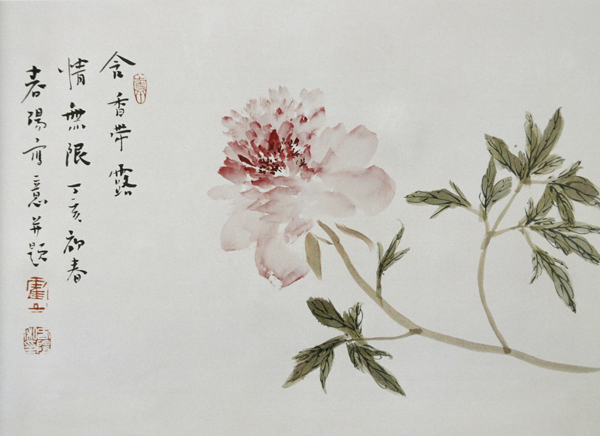 含香带露
情無限丁亥初春
春陽寫意并題